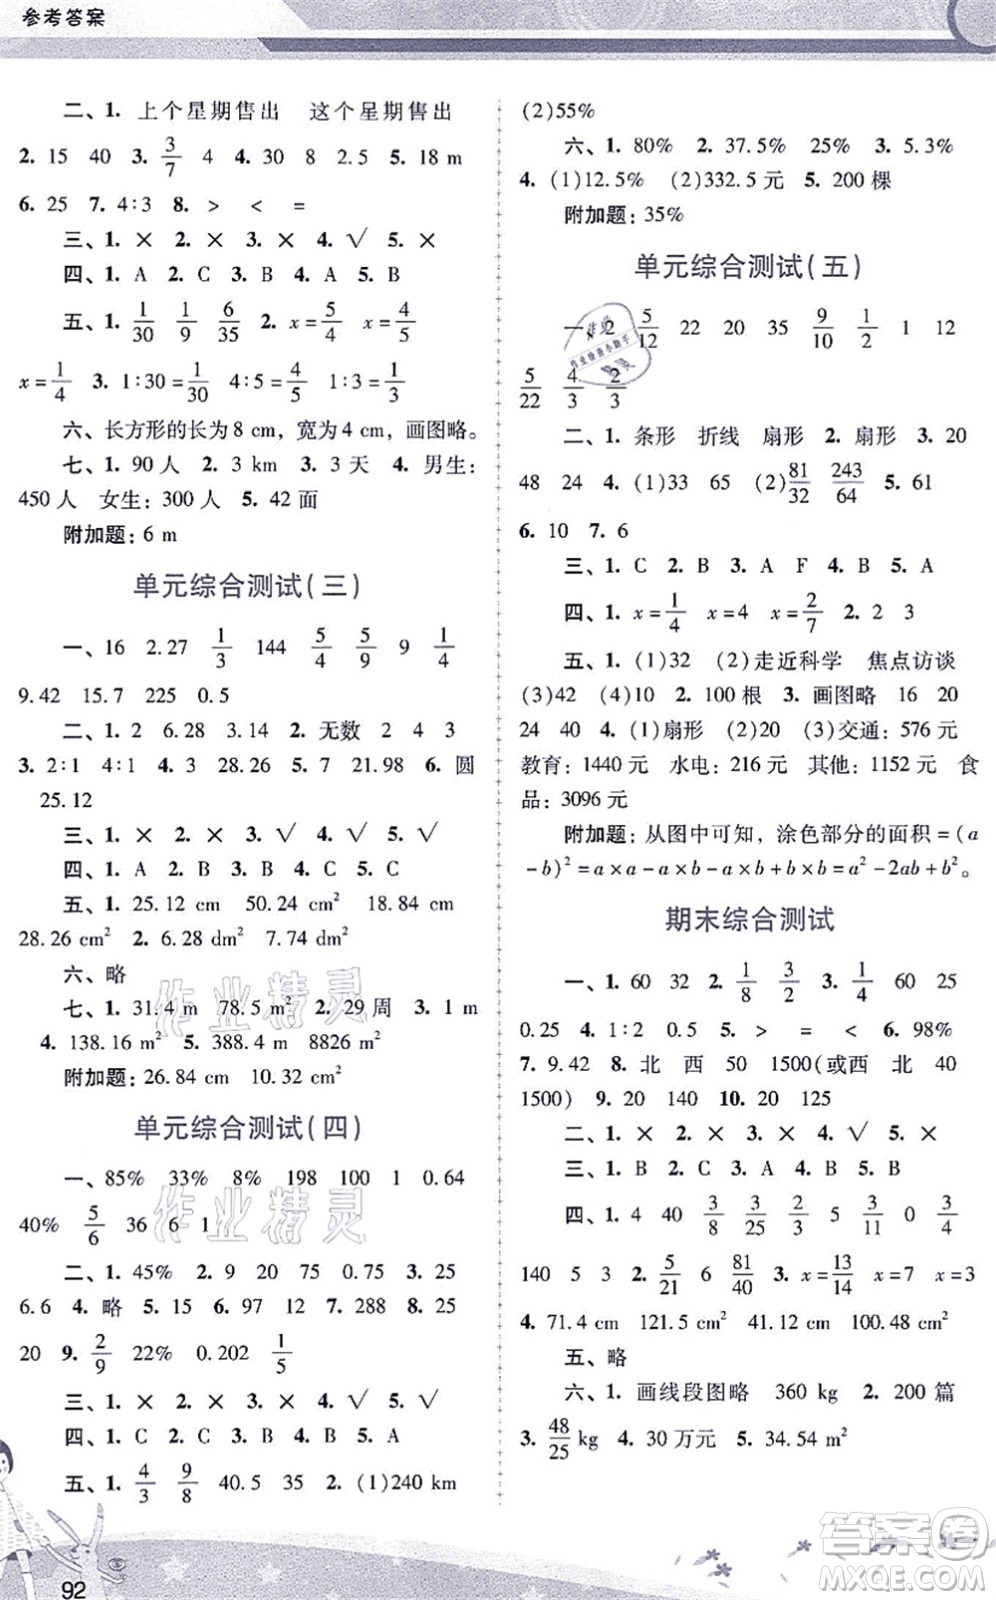 参考答案
二、1. 上个星期售出 这个星期售出
2. 15 40 3. 3/7 4 4. 30 8 2.5 5. 18 m
6. 25 7. 4∶3 8. > < =
三、1. × 2. × 3. × 4. √ 5. ×
四、1. A 2. C 3. B 4. A 5. B
五、1. 1/30 1/9 6/35 2. x=5/4 x=4/5
x=1/4 3. 1∶30=1/30 4∶5=4/5 1∶3=1/3
六、长方形的长为8 cm,宽为4 cm,画图略。
七、1. 90人 2. 3 km 3. 3天 4. 男生:
450人 女生:300人 5. 42面
附加题:6 m
单元综合测试(三)
一、16 2.27 1/3 144 5/4 5/9 9 1/4
9.42 15.7 225 0.5
二、1. 2 6.28 3.14 2. 无数 2 4 3
3. 2∶1 4∶1 4. 3 28.26 5. 7 21.98 6. 圆
25.12
三、1. × 2. × 3. √ 4. √ 5. √
四、1. A 2. B 3. B 4. C 5. C
五、1. 25.12 cm 50.24 cm² 18.84 cm
28.26 cm² 2. 6.28 dm² 7.74 dm²
六、略
七、1. 31.4 m 78.5 m² 2. 29周 3. 1 m
4. 138.16 m² 5. 388.4 m 8826 m²
附加题:26.84 cm 10.32 cm²
单元综合测试(四)
一、85% 33% 8% 198 100 1 0.64
40% 5/6 36 6 1
二、1. 45% 2. 9 20 75 0.75 3. 25
6.6 4. 略 5. 15 6. 97 12 7. 288 8. 25
20 9. 2/9 22% 0.202 1/5
三、1. × 2. × 3. × 4. √ 5. √
四、1. C 2. C 3. B 4. B 5. A
五、1. 4/3 9/8 40.5 35 2. (1)240 km
92
(2)55%
六、1. 80% 2. 37.5% 25% 3. 5.3%
4. (1)12.5% (2)332.5元 5. 200棵
附加题:35%
单元综合测试(五)
一、2 5/12 22 20 35 9/10 1/2 1 12
5/22 4/3 2/3
二、1. 条形 折线 扇形 2. 扇形 3. 20
48 24 4. (1)33 65 (2)81/32 243/64 5. 61
6. 10 7. 6
三、1. C 2. B 3. A F 4. B 5. A
四、1. x=1/4 x=4 x=2/7 2. 2 3
五、1. (1)32 (2)走近科学 焦点访谈
(3)42 (4)10 2. 100根 3. 画图略 16 20
24 40 4. (1)扇形 (2)20 (3)交通:576元
教育:1440元 水电:216元 其他:1152元 食
品:3096元
附加题:从图中可知,涂色部分的面积=(a
-b)²=a×a-a×b-a×b+b×b=a²-2ab+b²。
期末综合测试
一、1. 60 32 2. 1/8 3/2 3. 1/4 60 25
0.25 4. 1∶2 0.5 5. > = < 6. 98%
7. 9.42 8. 北 西 50 1500(或西 北 40
1500) 9. 20 140 10. 20 125
二、1. × 2. × 3. × 4. √ 5. ×
三、1. B 2. C 3. A 4. B 5. B
四、1. 4 40 3/8 3/25 2/3 5 3/11 0 3/4
140 5 3 2. 5/21 6 81/40 3. x=13/14 x=7 x=3
4. 71.4 cm 121.5 cm² 41.12 cm 100.48 cm²
五、略
六、1. 画线段图略 360 kg 2. 200篇
3. 48/25 kg 4. 30万元 5. 34.54 m²
作业精灵
作业精灵
答案圈
MXQE.COM